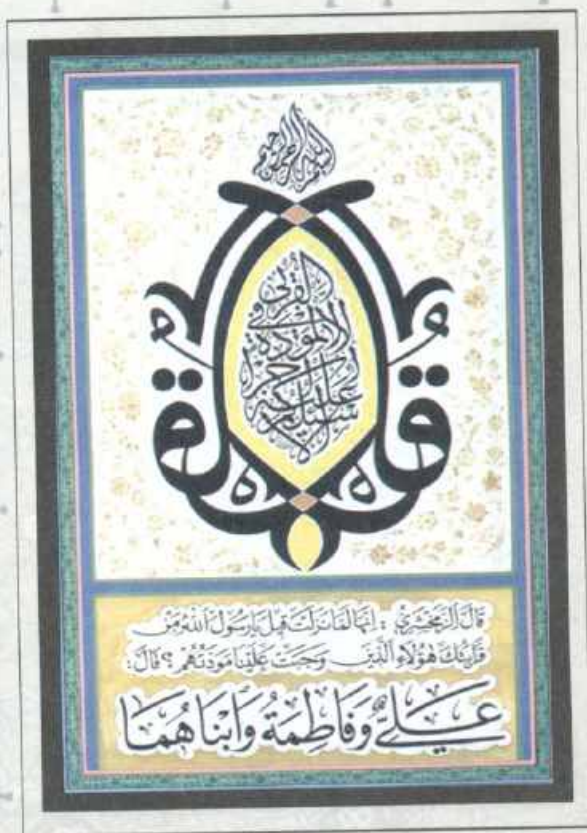 بسم الله الرحمن الرحيم
قل
لا أسئلكم عليه أجرا إلا المودة في القربى
قَالَ الزَّمَخْشَرِيُّ : إِنَّهَا لَمَّا نَزَلَتْ قِيلَ يَا رَسُولَ اللهِ مَنْ
قَرَابَتُكَ هٰؤُلَاءِ الَّذِينَ وَجَبَتْ عَلَيْنَا مَوَدَّتُهُمْ ؟ قَالَ :
عَلِيٌّ وَفَاطِمَةُ وَابْنَاهُمَا